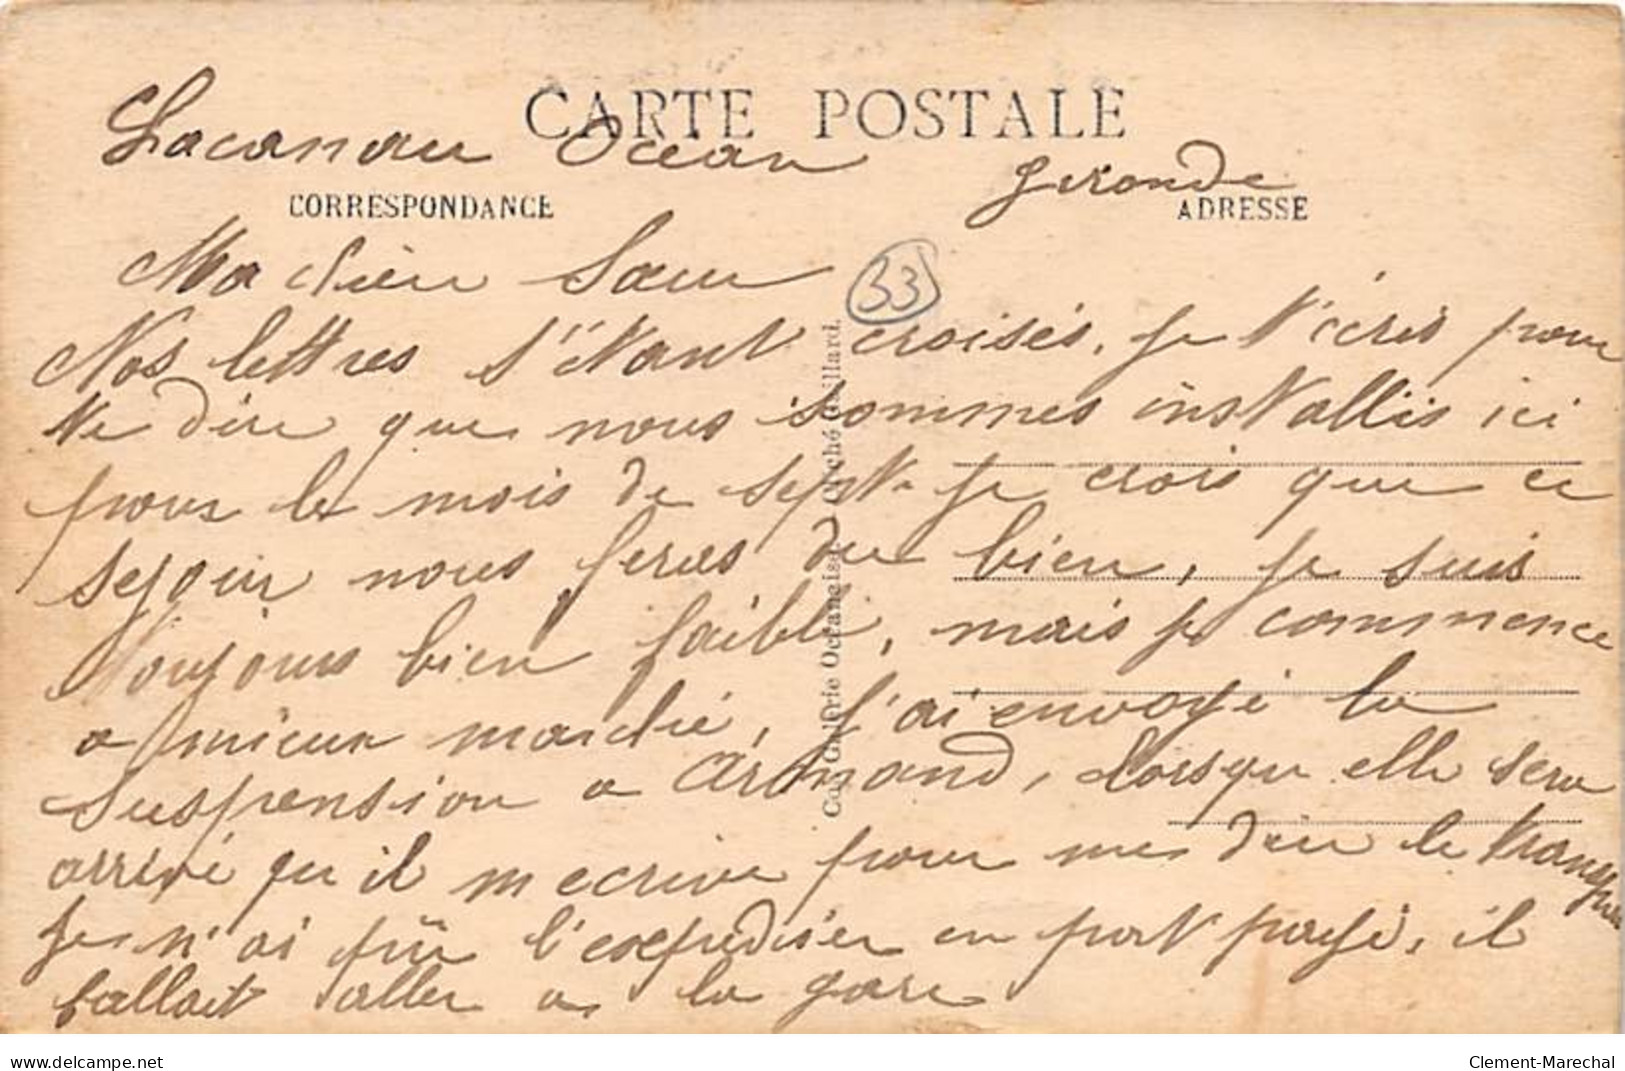 CARTE POSTALE
Lacanau Océan Gironde
CORRESPONDANCE
ADRESSE
33
Ma chère Sœur
Nos lettres s'étant croisés, je t'écris pour
te dire que nous sommes installés ici
pour le mois de sept. je crois que ce
sejour nous feras du bien, je suis
toujours bien faible, mais je commence
a mieux marché, j'ai envoyé la
suspension a Armand, lorsqu elle sera
arrivé qu il m ecrive pour me dire le manque
je n'ai pû l'expedier en port payé, il
fallait aller a la gare
Galerie Océangise. Cliché Gaillard.
www.delcampe.net
Clement-Marechal